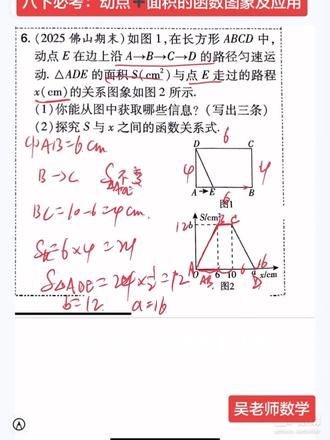 八下必考：动点+面积的函数图象及应用
6. (2025 佛山期末)如图 1,在长方形 ABCD 中,
动点 E 在边上沿 A→B→C→D 的路径匀速运
动. △ADE 的面积 S(cm²)与点 E 走过的路程
x(cm)的关系图象如图 2 所示.
(1)你能从图中获取哪些信息？(写出三条)
(2)探究 S 与 x 之间的函数关系式.
(1) AB=6cm
B→C S△ADE不变
BC=10-6=4cm.
=6×4=24
S△ADE=24×½=12
b=12. a=16
6
D C
4 4
A →E B
6
图1
S/cm²
12 b B C
A O AB 6 10 6 a 16 x/cm
D
图2
吴老师数学
A